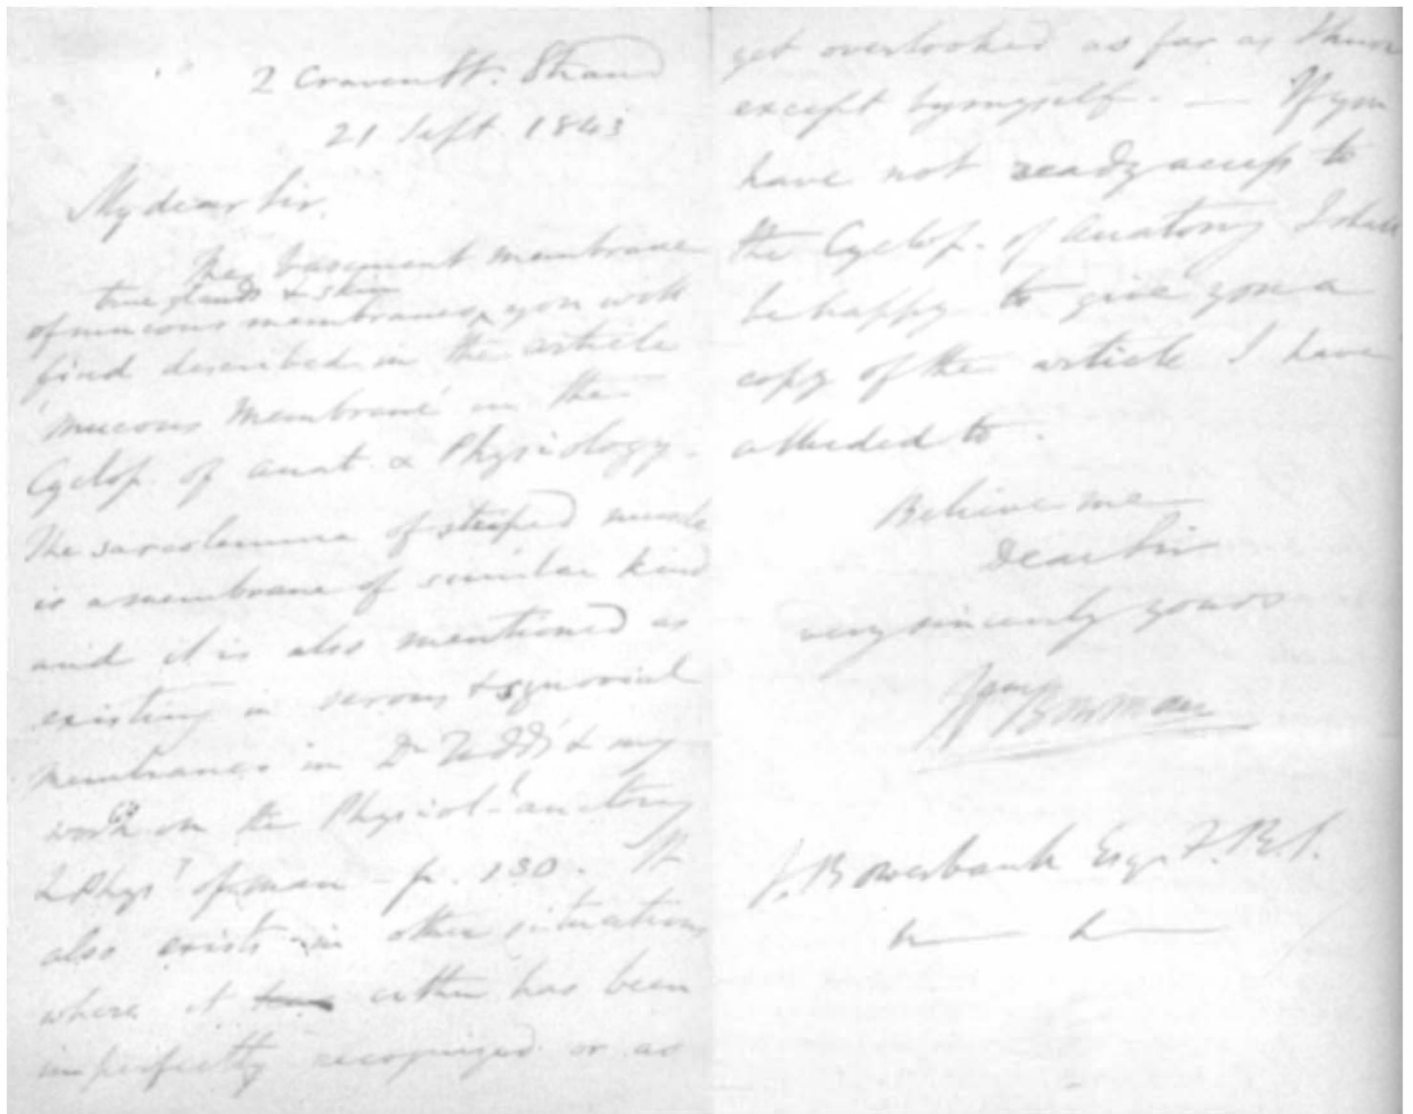 2 Craven St. Strand
21 Sept. 1843
My dear Sir.
The basement membrane
true glands & skin
of mucous membranes, you will
find described in the article
'Mucous Membrane' in the
Cyclop. of Anat. & Physiology.
The sarcolemma of striped muscle
is a membrane of similar kind
and it is also mentioned as
existing in serous & synovial
membranes in Dr Todd's & my
work on the Physiol.l anatomy
& Phys.y of man - p. 130. It
also exists in other situations
where it either has been
imperfectly recognized or as
yet overlooked as far as I know
except by myself. — If you
have not ready access to
the Cyclop. of Anatomy I shall
be happy to give you a
copy of the article I have
alluded to.
Believe me
Dear Sir
very sincerely yours
W Bowman
J. Bowerbank Esqr. F.R.S.